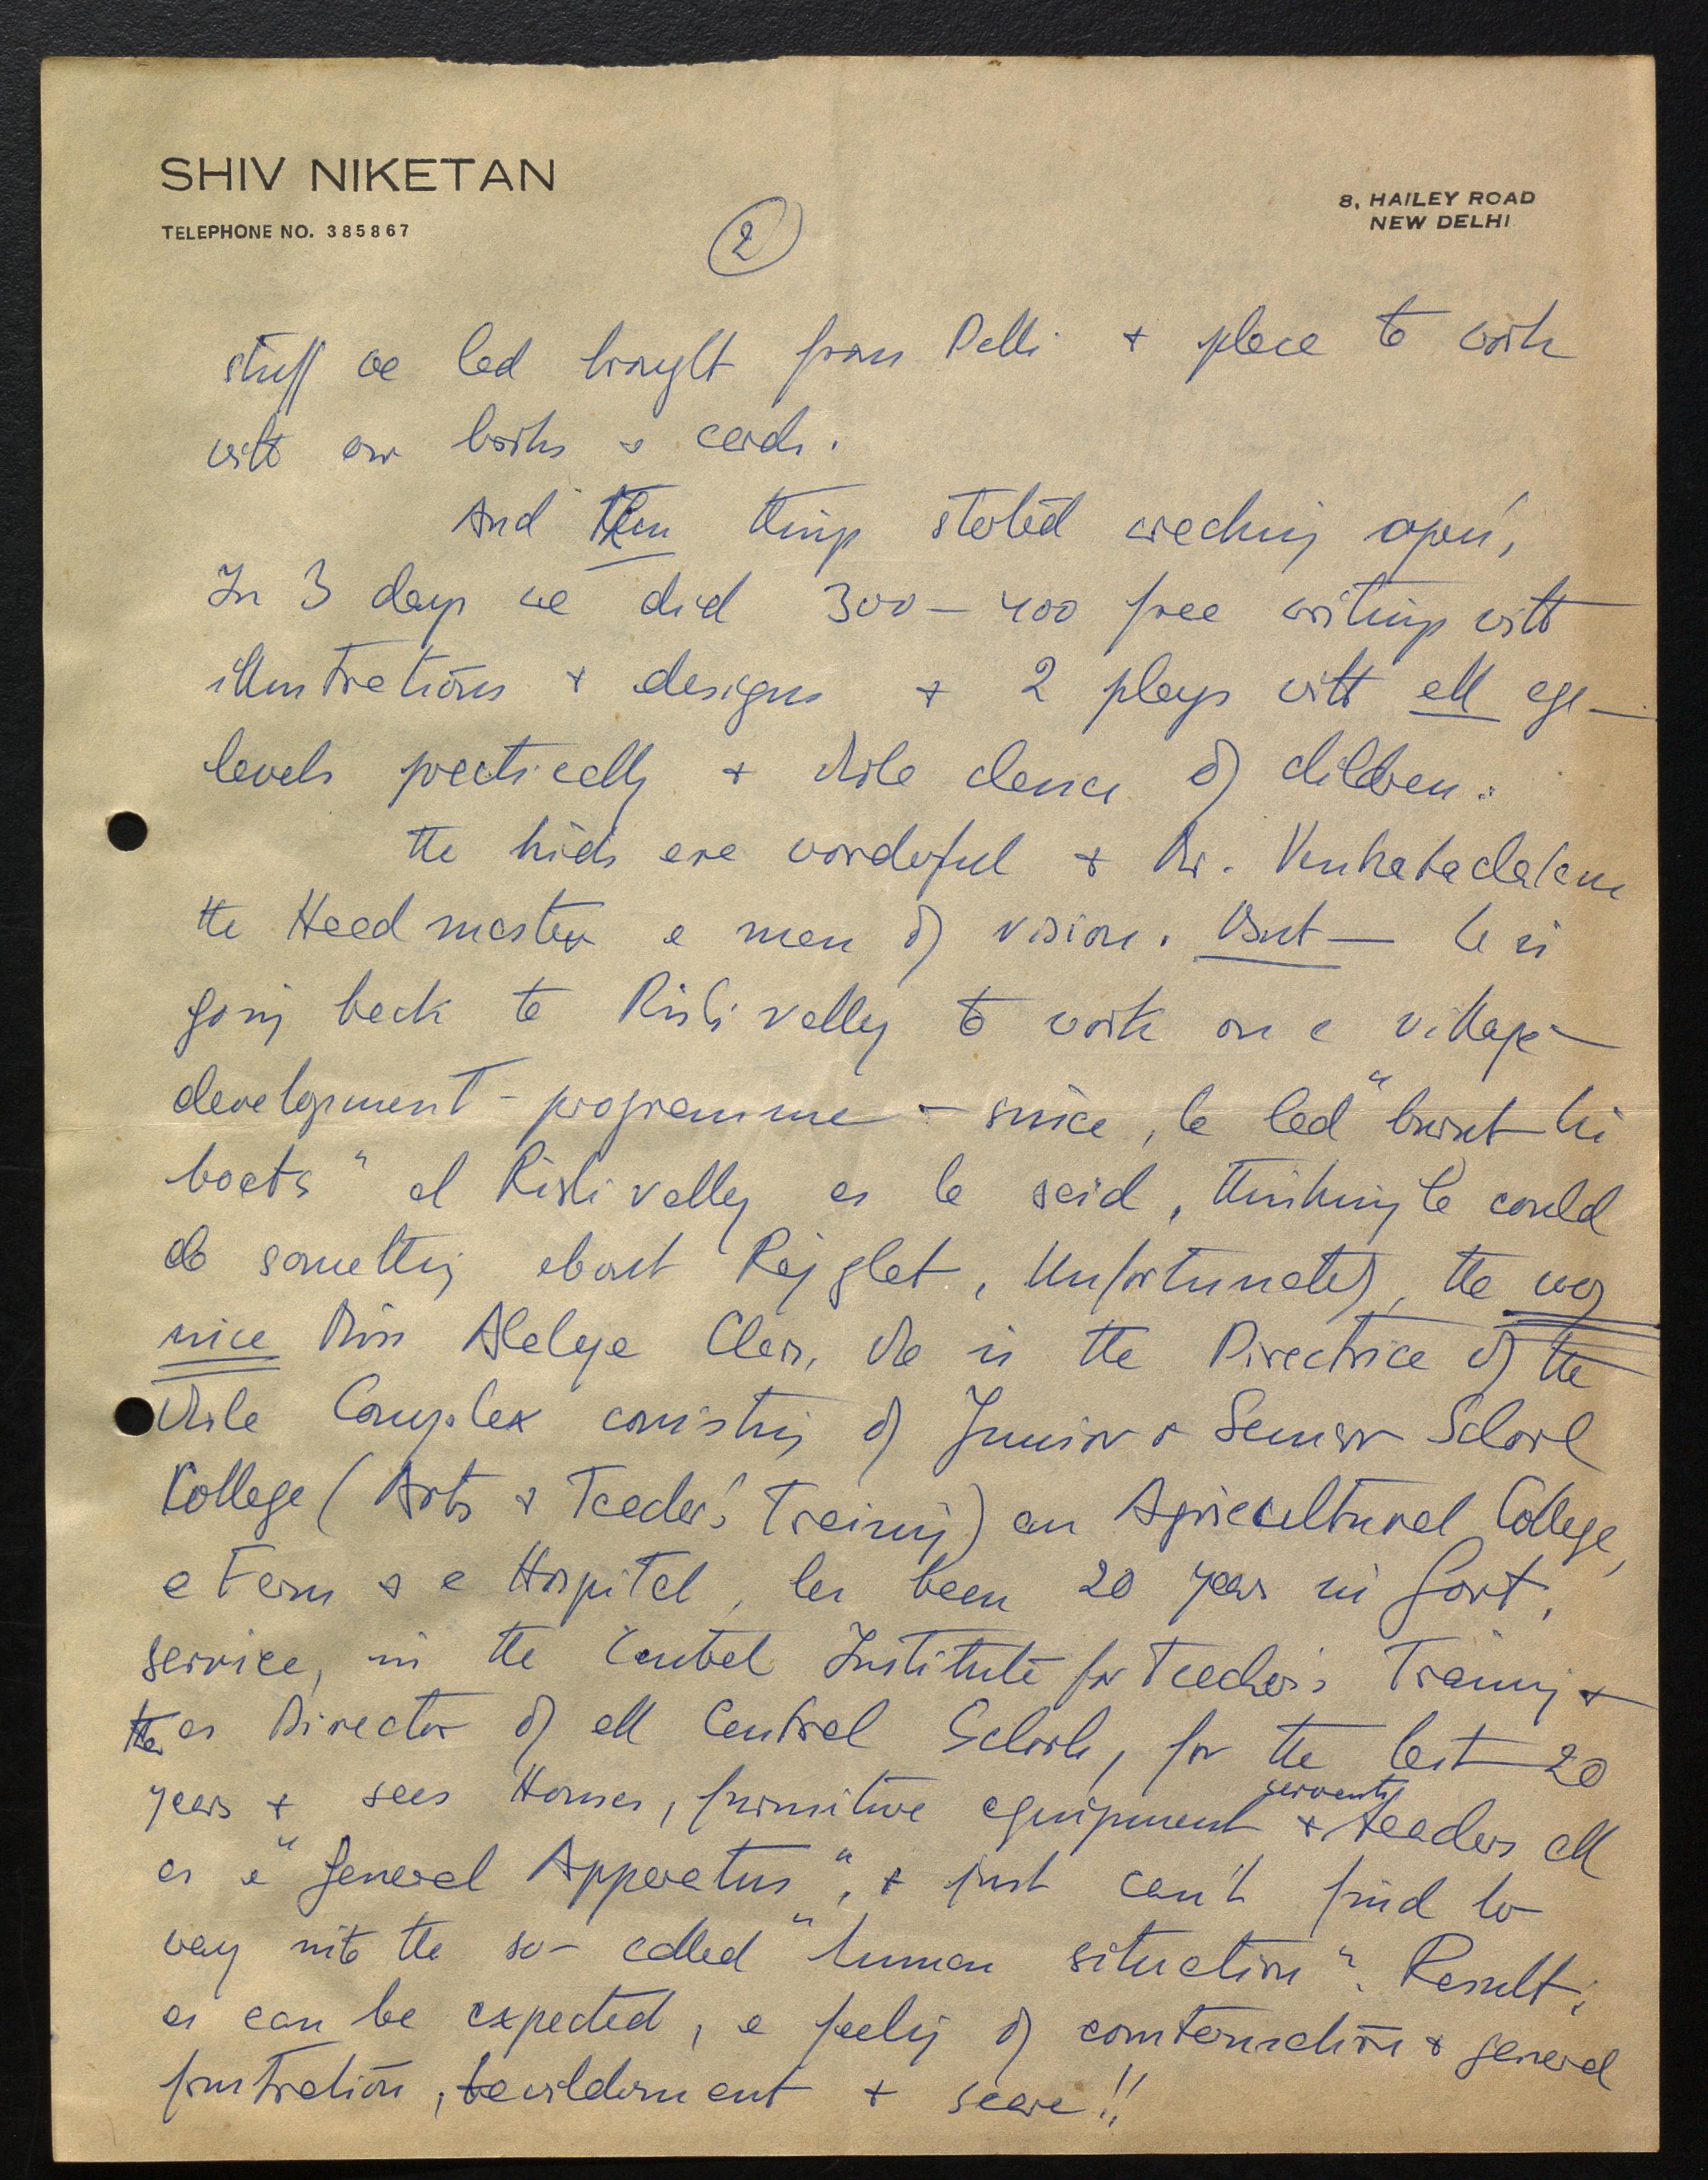 SHIV NIKETAN
TELEPHONE NO. 385867
8, HAILEY ROAD
NEW DELHI
2
stuff we had brought from Delhi + place to work
with our books & cards.
And then things started cracking open,
In 3 days we did 300 - 400 free writings with
illustrations + designs + 2 plays with all age-
levels practically + whole classes of children.
The kids are wonderful + Mr. Venkatachalam
the Headmaster a man of vision. But — he is
going back to Rishi valley to work on a village-
development - programme - since, he had "burnt his
boats" at Rishi valley as he said, thinking he could
do something about Rajghat, Unfortunately, the very
nice Miss Ahalya Chari, who is the Directrice of the
whole Complex consisting of Junior & Senior School
College (Arts & Teacher's Training) an Agricultural College,
a Farm & a Hospital, has been 20 years in Govt.
service, in the Central Institute for Teacher's Training +
then as Director of all Central Schools, for the last 20
years + sees Homes, primitive equipment servants + teachers all
as a "General Apparatus", + just can't find her
way into the so-called "human situation". Result;
as can be expected, a feeling of consternation + general
frustration, bewilderment + scare!!